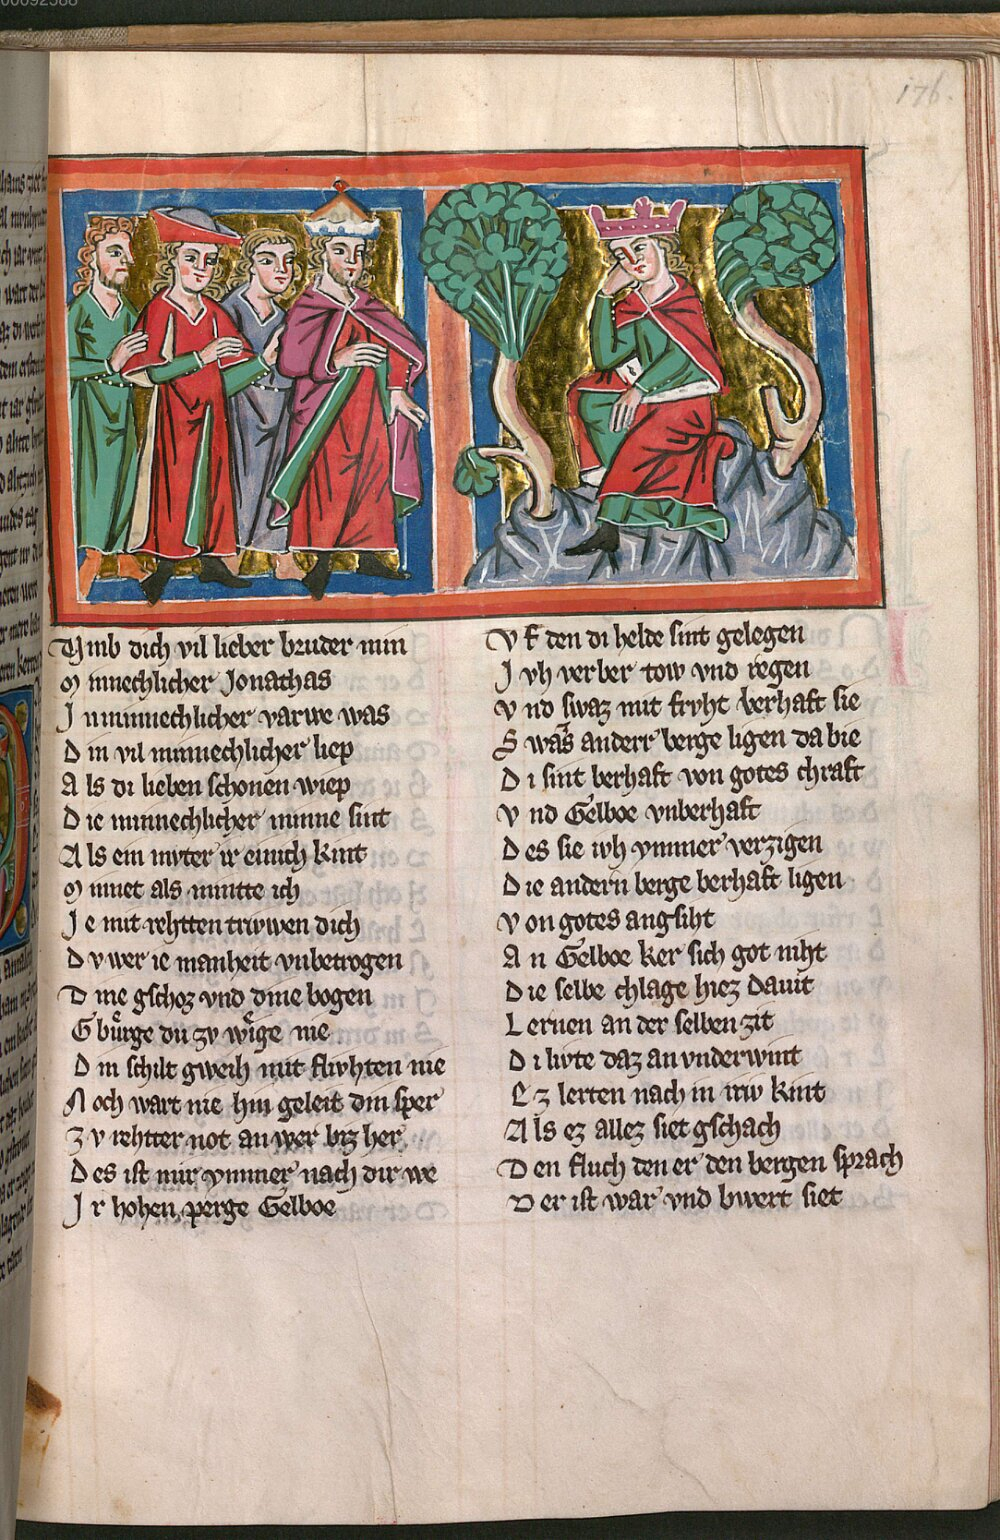 00092588
176.
Vmb dich vil lieber bruder min
Minnechlicher Jonathas
In minnechlicher varwe was
Din vil minnechlicher liep
Als di lieben schonen wiep
Die minnechlicher minne sint
Als ein mvter ir einich kint
Minnet als minnte ich
Ie mit rehtten triwen dich
Dv wer ie manheit vnbetrogen
Dine gschoz vnd dine bogen
Gbuͤrge du zv wige nie
Din schilt gweih mit flvhten nie
Noch wart nie hin geleit din sper
Zv rehtter not an wer biz her
Des ist mir ymmer nach dir we
Ir hohen perge Gelboe
Vf den di helde sint gelegen
Ivh verber tow vnd regen
Vnd swaz mit frvht berhaft sie
Swas anderr berge ligen da bie
Di sint berhaft von gotes chraft
Vnd Gelboe vnberhaft
Des sie ivh ymmer verzigen
Die andern berge berhaft ligen
Von gotes angsiht
An Gelboe ker sich got niht
Die selbe chlage hiez Dauit
Lernen an der selben zit
Di livte daz an vnderwint
Ez lerten nach in iriv kint
Als ez allez siet gschach
Den fluch den er den bergen sprach
Der ist war vnd bwert siet